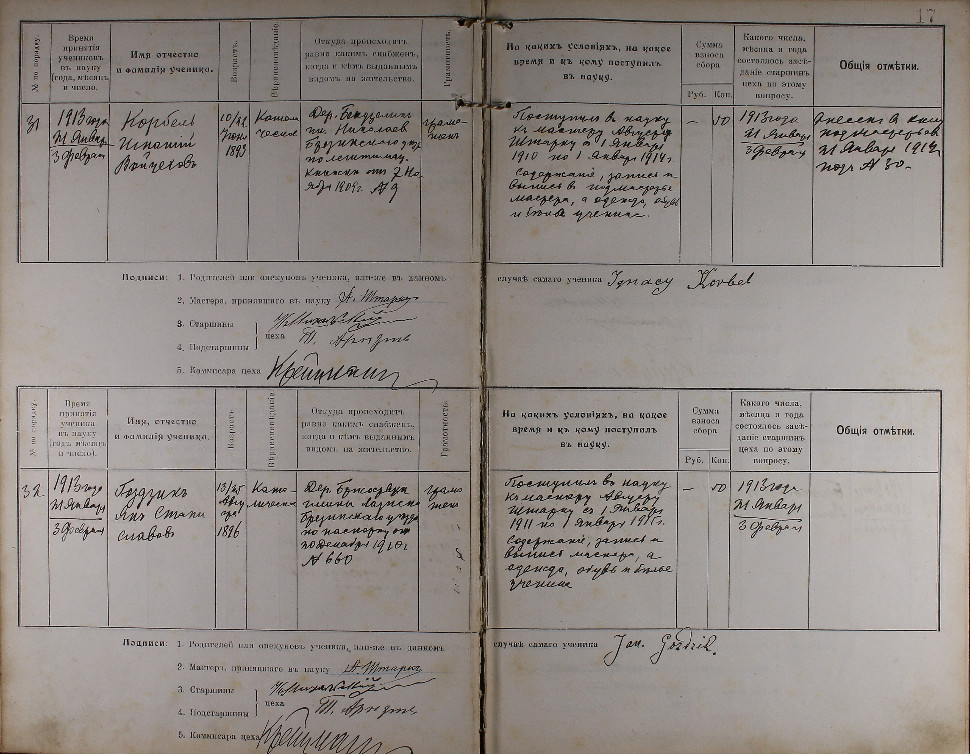 17
№ по порядку.
Время
принятія
учениковъ
въ науку
(года, мѣсяц.
и число).
Имя отчество
и фамилія ученика.
Возрастъ.
Вѣроисповѣданіе.
Откуда происходитъ
равно какимъ снабженъ,
когда и кѣмъ выданнымъ
видомъ на жительство.
Грамотность.
На какихъ условіяхъ, на какое
время и къ кому поступилъ
въ науку.
Сумма
взноса
сбора
Руб. Коп.
Какого числа,
мѣсяца и года
состоялось засѣ-
даніе старшинъ
цеха по этому
вопросу.
Общія отмѣтки.
31
1913 года
21 Января
3 Февраля
Корбель
Игнатій
Войцеховъ
10/22
Іюня
1893
Николаев
Брезинскаго уѣзда
по легитимац.
книжки отъ 2 Но-
ября 1909 г. № 9
грамо-
тенъ
Поступилъ въ науку
къ мастеру Августу
Штарку съ 1 Января
1910 по 1 Января 1914 г.
Содержаніе, запись и
выпись въ подмастерья
мастера, а одежда, обувь
и бѣлье ученика.
— 50
1913 года
21 Января
3 Февраля
31 Января 1914
подъ № 30
Подписи: 1. Родителей или опекуновъ ученика, или-же въ данномъ
случаѣ самаго ученика Ignacy Korbel
2. Мастера, принявшаго въ науку А. Штаркъ
3. Старшины
цеха
4. Подстаршины
Т. Арндтъ
5. Комиссара цеха
№ по порядку.
Время
принятія
ученика
въ науку
(годъ мѣсяцъ
и число).
Имя, отчество
и фамилія ученика.
Возрастъ
Вѣроисповѣданіе
Откуда происходитъ
равно какимъ снабжен.
когда и кѣмъ выданнымъ
видомъ на жительство.
Грамотность
На какихъ условіяхъ, на какое
время и къ кому поступилъ
въ науку.
Сумма
взноса
сбора
Руб. Коп.
Какого числа,
мѣсяца и года
состоялось засѣ-
даніе старшинъ
цеха по этому
вопросу.
Общія отмѣтки.
32
1913 года
21 Января
3 Февраля
Гоздзикъ
Янъ Стани
славовъ
13/25
1896
Като-
лическ.
Дер.
гмина
Брезинскаго уѣзда
по паспорту отъ
декабря 1910 г
№ 660
грамо
тенъ
Поступилъ въ науку
къ мастеру Августу
Штарку съ 1 Января
1911 по 1 Января 1915 г.
Содержаніе, запись и
выпись мастера, а
одежда, обувь и бѣлье
ученика
— 50
1913 года
21 Января
3 Февраля
Подписи: 1. Родителей или опекуновъ ученика, или-же въ данномъ
случаѣ самаго ученика Jan. Goździk.
2. Мастеръ, принявшаго въ науку А. Штаркъ
3. Старшины
цеха
4. Подстаршины
Т. Арндтъ
5. Комиссара цеха